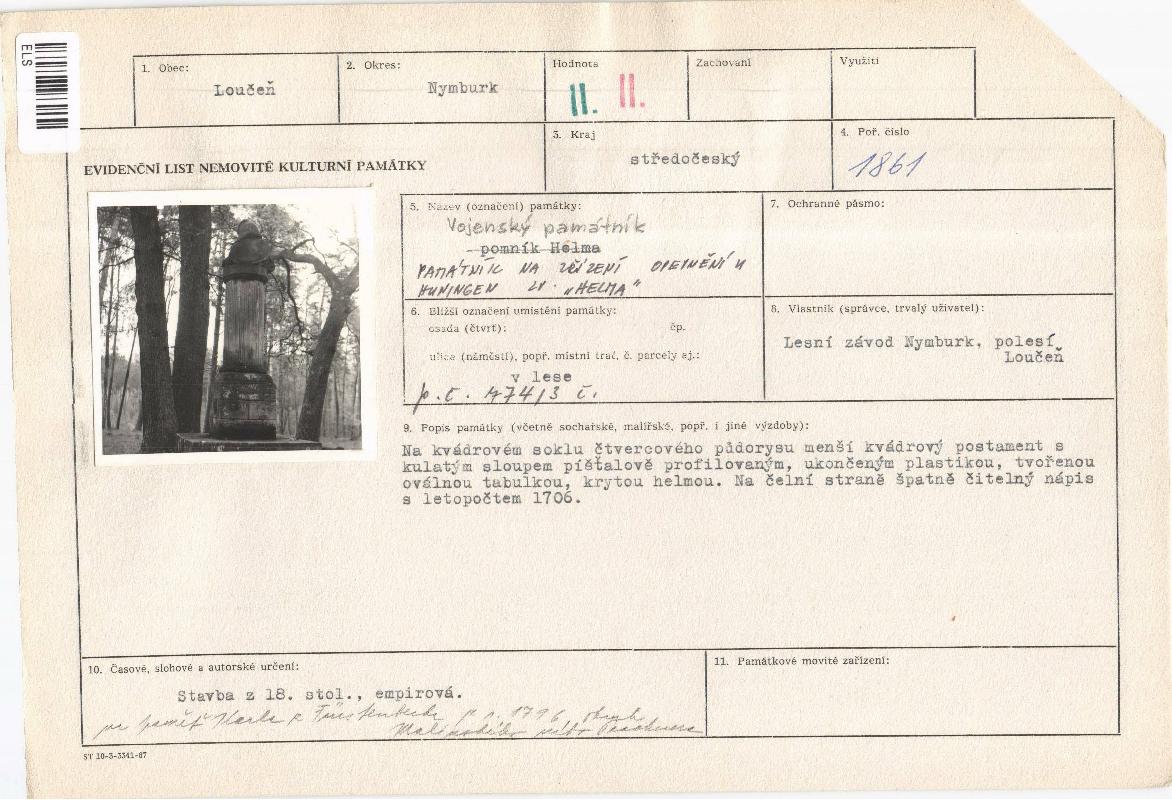 ELS
1. Obec:
Loučeň
2. Okres:
Nymburk
Hodnota
II. II.
Zachování
Využití
3. Kraj
středočeský
4. Poř. číslo
1861
EVIDENČNÍ LIST NEMOVITÉ KULTURNÍ PAMÁTKY
5. Název (označení) památky:
Vojenský památník
pomník Helma
PAMÁTNÍK NA ZŘÍZENÍ OPEVNĚNÍ V
HUNINGEN ZV. „HELMA"
7. Ochranné pásmo:
6. Bližší označení umístění památky:
osada (čtvrť): čp.
ulice (náměstí), popř. místní trať, č. parcely aj.:
v lese
p.č. 474/3 č.
8. Vlastník (správce, trvalý uživatel):
Lesní závod Nymburk, polesí
Loučeň
9. Popis památky (včetně sochařské, malířské, popř. i jiné výzdoby):
Na kvádrovém soklu čtvercového půdorysu menší kvádrový postament s
kulatým sloupem píšťalově profilovaným, ukončeným plastikou, tvořenou
oválnou tabulkou, krytou helmou. Na čelní straně špatně čitelný nápis
s letopočtem 1706.
10. Časové, slohové a autorské určení:
Stavba z 18. stol., empirová.
na paměť Karla z Fürstenberka 1796,
11. Památkové movité zařízení:
ST 10-3-3341-67